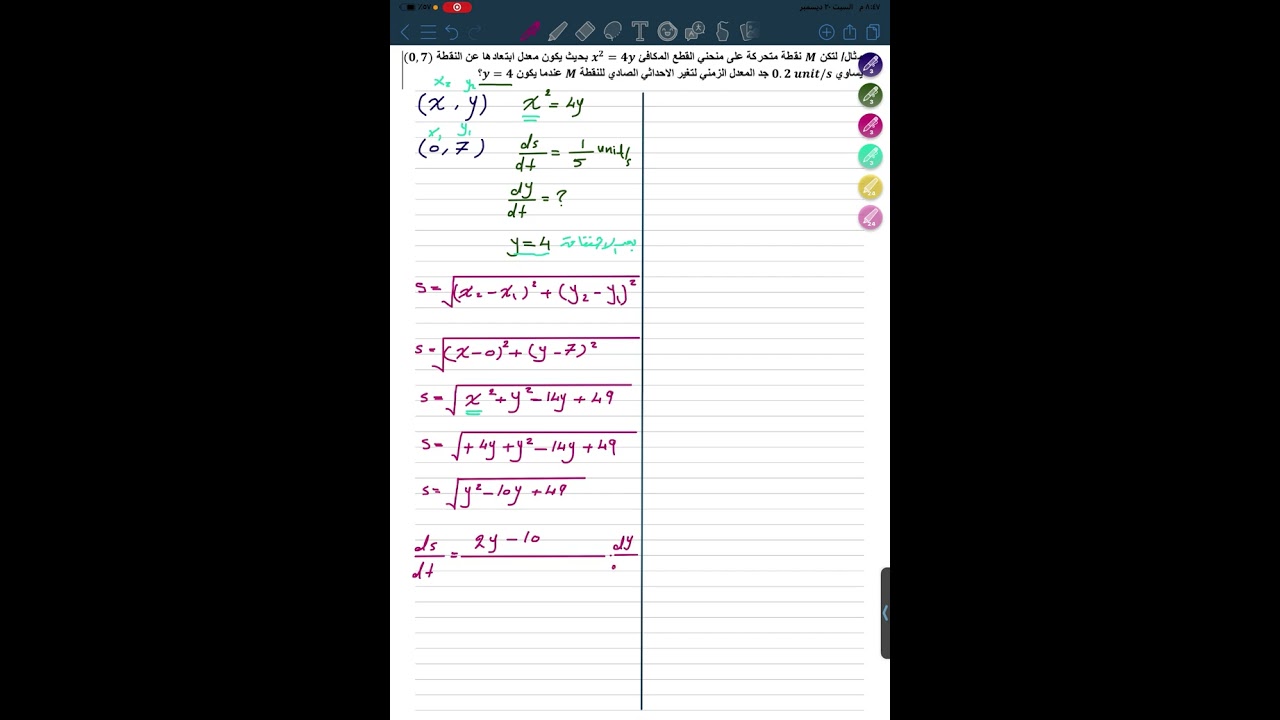 ٨:٤٧ م السبت ٣٠ ديسمبر
٪٥٧
مثال/ لتكن M نقطة متحركة على منحني القطع المكافئ x² = 4y بحيث يكون معدل ابتعادها عن النقطة (0, 7)
يساوي 0.2 unit/s جد المعدل الزمني لتغير الاحداثي الصادي للنقطة M عندما يكون y = 4؟
x₂ y₂
(x , y) x² = 4y
x₁ y₁
(0, 7) ds/dt = 1/5 unit/s
dy/dt = ?
y = 4
s = √(x₂ - x₁)² + (y₂ - y₁)²
s = √(x - 0)² + (y - 7)²
s = √x² + y² - 14y + 49
s = √+ 4y + y² - 14y + 49
s = √y² - 10y + 49
ds/dt = 2y - 10 . dy
3
3
3
3
24
24